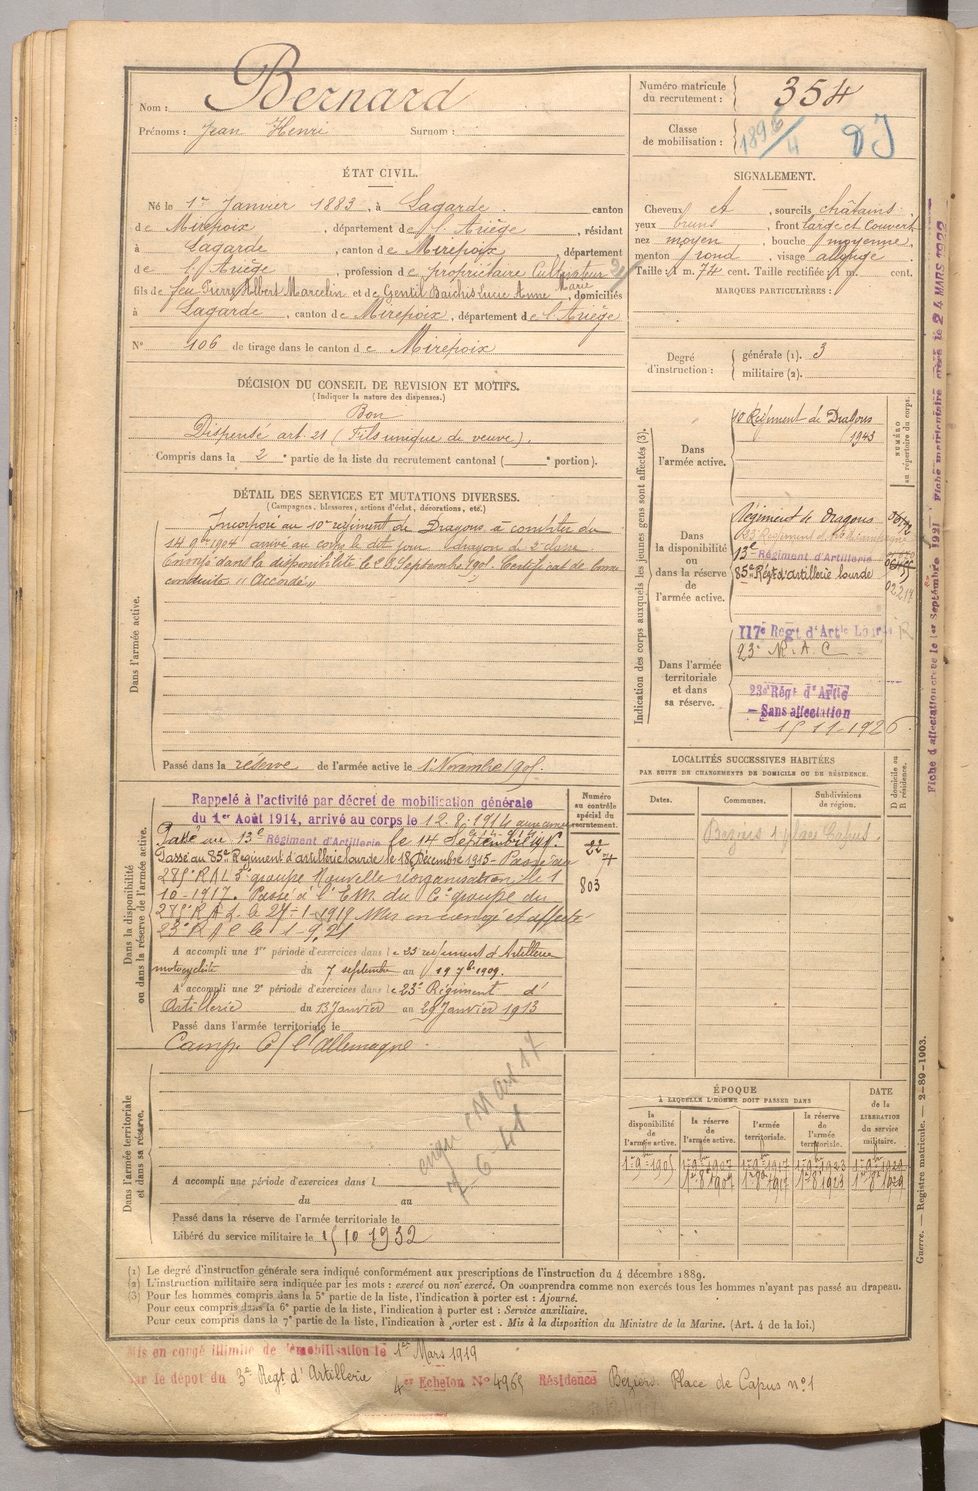 Nom : Bernard
Prénoms : Jean Henri Surnom :
ÉTAT CIVIL.
Né le 1er Janvier 1883, à Lagarde canton
de Mirepoix, département de l'Ariège, résidant
à Lagarde, canton de Mirepoix département
de l'Ariège, profession de propriétaire Cultivateur
fils de feu Pierre Albert Marcelin et de Gentil Baichis Lucie Anne Marie, domiciliés
à Lagarde, canton de Mirepoix, département de l'Ariège
N° 106 de tirage dans le canton de Mirepoix
DÉCISION DU CONSEIL DE REVISION ET MOTIFS.
(Indiquer la nature des dispenses.)
Bon
Dispensé art. 21 (Fils unique de veuve).
Compris dans la 2e partie de la liste du recrutement cantonal ( e portion).
DÉTAIL DES SERVICES ET MUTATIONS DIVERSES.
(Campagnes, blessures, actions d'éclat, décorations, etc.)
Dans l'armée active.
Incorporé au 10e régiment de Dragons à compter du
14 9bre 1904 arrivé au corps le dit jour dragon de 2e classe
Envoyé dans la disponibilité le 23 Septembre 1905. Certificat de bonne
conduite "Accordé"
Passé dans la réserve de l'armée active le 1er Novembre 1907.
Dans la disponibilité
ou dans la réserve de l'armée active.
Rappelé à l'activité par décret de mobilisation générale
du 1er Août 1914, arrivé au corps le 12.8.1914
Passé au 13e Régiment d'Artillerie le 14 Septembre
Passé au 85e Régiment d'artillerie lourde le 18 Décembre 1915 - Passé au
289e RAL 3e groupe Nouvelle réorganisation le 1
10-1917. Passé à l'E.M. du groupe du
R A L le 27-1-1918 Mis en congé et affecté
23e R A C le 1-9.21
A accompli une 1re période d'exercices dans le 23 régiment d'Artillerie
motocycliste du 7 septembre au 19 7bre 1909.
A accompli une 2e période d'exercices dans le 23e Régiment d'
Artillerie du 13 Janvier au 29 Janvier 1913
Passé dans l'armée territoriale le
Camp. C/ l'Allemagne.
Numéro
au contrôle
spécial du
recrutement.
22
803
Dans l'armée territoriale
et dans sa réserve.
A accompli une période d'exercices dans l
du au
Passé dans la réserve de l'armée territoriale le
Libéré du service militaire le 15 10 1932
Numéro matricule
du recrutement : 354
Classe
de mobilisation : 1896/4
SIGNALEMENT.
Cheveux et, sourcils châtains
yeux bruns, front large et couvert
nez moyen, bouche moyenne,
menton rond, visage allongé
Taille : 1 m. 74 cent. Taille rectifiée : 1 m. cent.
MARQUES PARTICULIÈRES :
Degré
d'instruction :
générale (1). 3
militaire (2).
Indication des corps auxquels les jeunes gens sont affectés (3).
NUMÉRO
au répertoire du corps.
Dans
l'armée active.
10 Régiment de Dragons
1943
Dans
la disponibilité
ou
dans la réserve
de
l'armée active.
Régiment de Dragons
13e Régiment d'Artillerie
85e Régt d'artillerie lourde
02217
Dans l'armée
territoriale
et dans
sa réserve.
117e Régt d'Artie Lourde
23e R.A.C
23e Régt d'Artie
— Sans affectation
15 11 1926
LOCALITÉS SUCCESSIVES HABITÉES
PAR SUITE DE CHANGEMENTS DE DOMICILE OU DE RÉSIDENCE.
Dates. Communes. Subdivisions
de région. D domicile ou
R résidence.
Beziers 1 place Capus
ÉPOQUE
À LAQUELLE L'HOMME DOIT PASSER DANS
DATE
de la
LIBÉRATION
du service
militaire.
la
disponibilité
de
l'armée active.
la réserve
de
l'armée active.
l'armée
territoriale.
la réserve
de
l'armée
territoriale.
Fiche d'affectation créée le 1er Septembre 1921 Fiche matriculaire créée le 24 MARS 1922
Guerre. — Registre matricule. — 2-89-1903.
(1) Le degré d'instruction générale sera indiqué conformément aux prescriptions de l'instruction du 4 décembre 1889.
(2) L'instruction militaire sera indiquée par les mots : exercé ou non exercé. On comprendra comme non exercés tous les hommes n'ayant pas passé au drapeau.
(3) Pour les hommes compris dans la 5e partie de la liste, l'indication à porter est : Ajourné.
Pour ceux compris dans la 6e partie de la liste, l'indication à porter est : Service auxiliaire.
Pour ceux compris dans la 7e partie de la liste, l'indication à porter est : Mis à la disposition du Ministre de la Marine. (Art. 4 de la loi.)
Mis en congé illimité de démobilisation le 1er Mars 1919
par le dépôt du 3e Regt d'Artillerie 4er Echelon N° 4965 Résidence Béziers. Place de Capus n°1